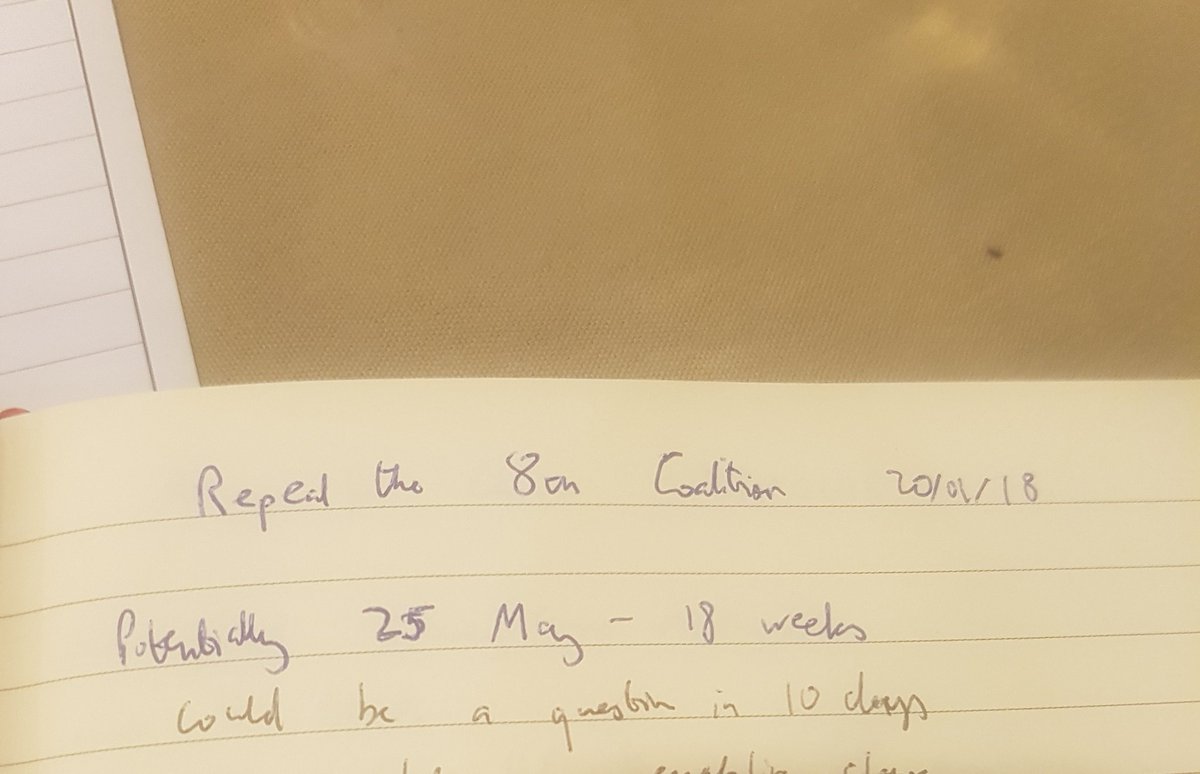 Repeal the 8th Coalition 20/01/18
Potentially 25 May - 18 weeks
Could be a question in 10 days